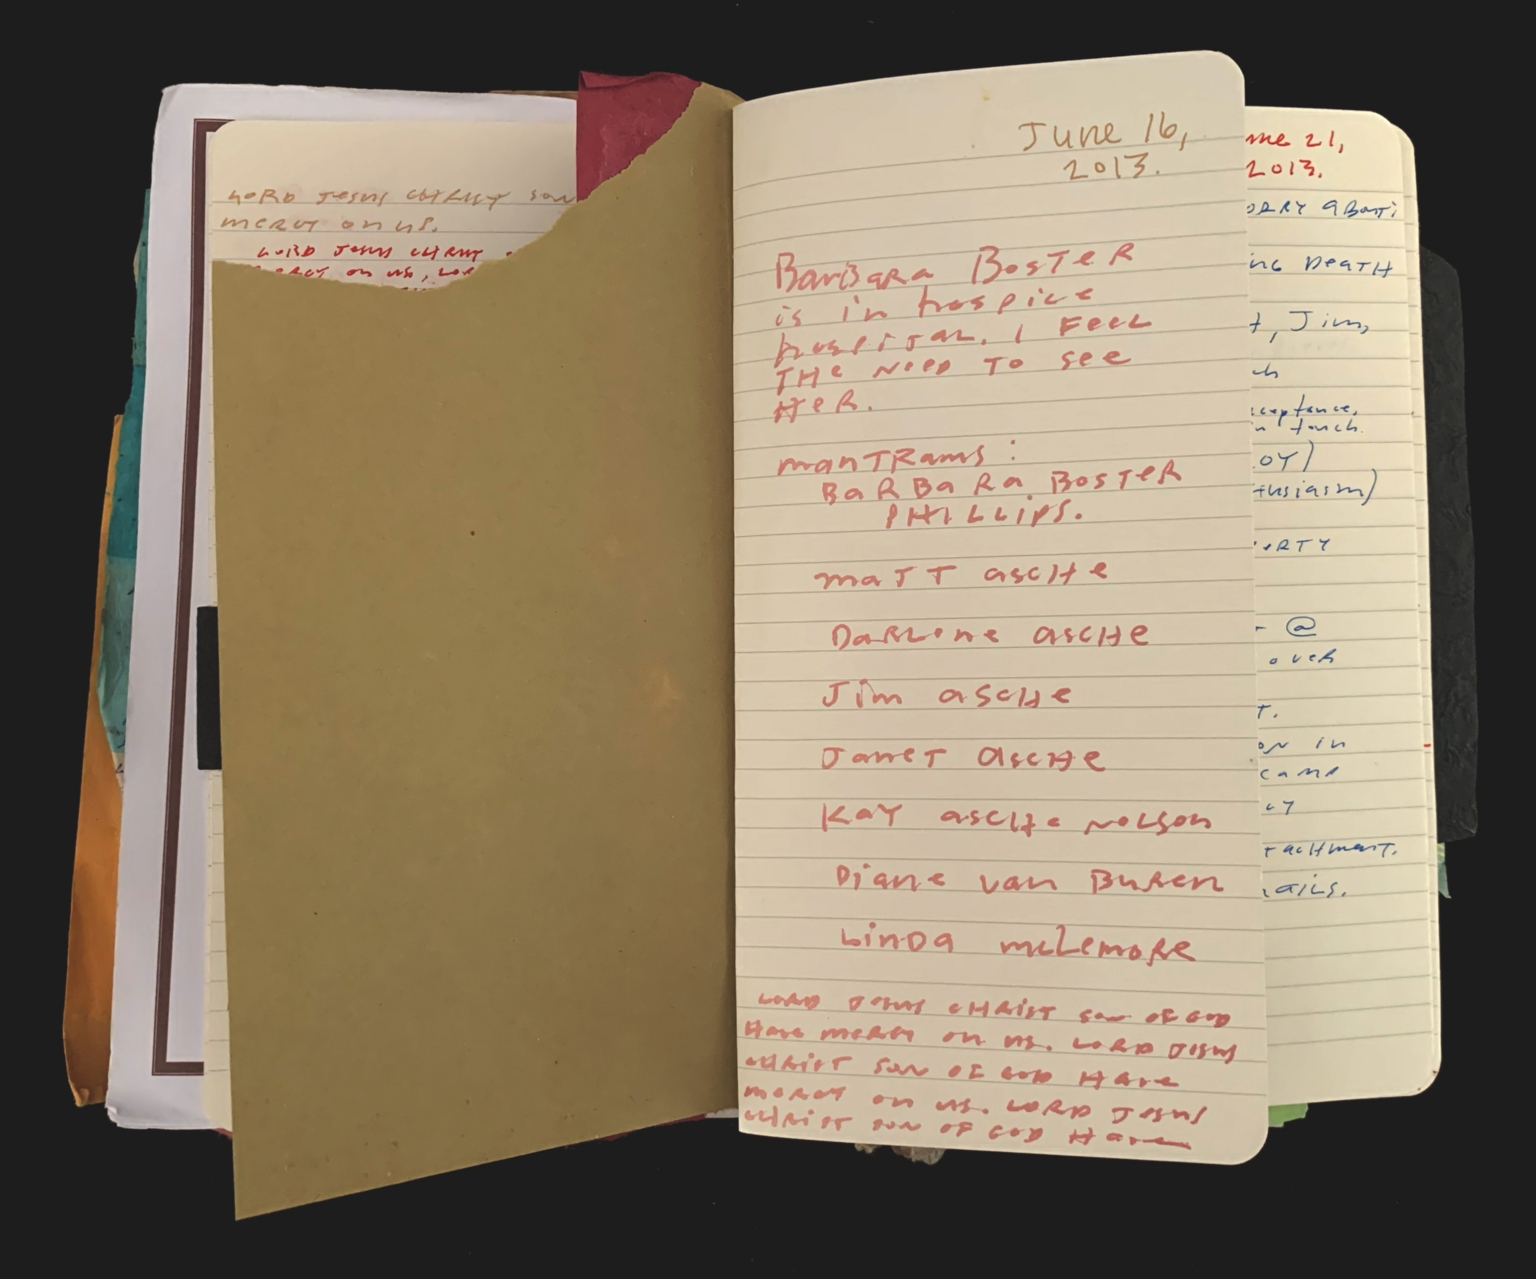 LORD JESUS CHRIST SON
MERCY ON US.
LORD JESUS CHRIST
MERCY ON US, LOR
June 16,
2013.
BarBara Boster
is in hospice
hospital. I FEEL
THE NEED TO SEE
HER.
manTRams:
BaRBaRa BOSTER
PHILLIPS.
maTT ascHe
DaRLene ascHe
Jim ascHe
JaneT ascHe
KaY ascHe NeLson
Diane van BuRen
LinDa mcLemoRe
LORD JESUS CHRIST SON OF GOD
Have meRCY on us. LORD JESUS
CHRIST SON OF GOD Have
meRCY on us. LORD JESUS
CHRIST SON OF GOD Have
une 21,
2013.
ORRY aBouT
ING DeaTH
t, Jim,
ch
cceptance,
n touch.
OY)
thusiasm)
eRTY
- @
over
T.
on in
came
cy
tacHmenT.
ails.